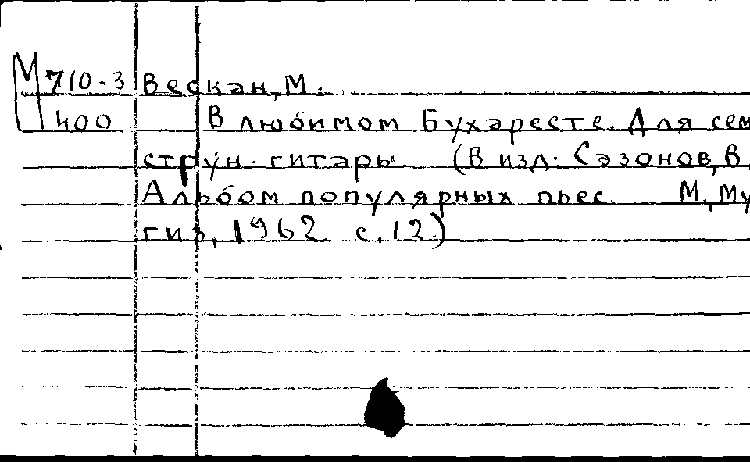 М 710-3 Вескан, М.
400 В любимом Бухаресте. Для сем
струн. гитары (В изд. Сазонов, В.
Альбом популярных пьес М., Му
гиз, 1962 с. 12)